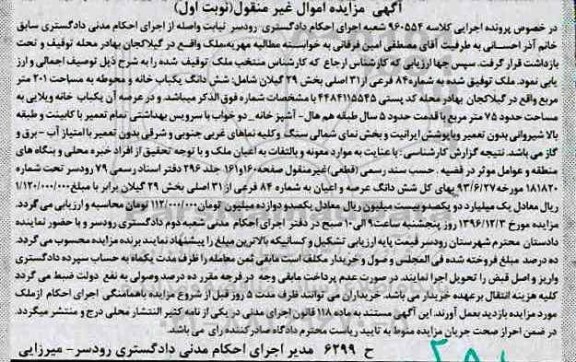 آگهی مزایده اموال غیر منقول(نوبت اول)
در خصوص پرونده اجرایی کلاسه ۹۶۰۵۵۴ شعبه اجرای احکام دادگستری رودسر نیابت واصله از اجرای احکام مدنی دادگستری سابق
خانم آذر احسانی به طرفیت آقای مصطفی امین فرقانی به خواسته مطالبه مهریه ملک واقع در گیلاکجان بهادر محله توقیف و تحت
بازداشت قرار گرفت. سپس جهت ارزیابی که کارشناس ارجاع که کارشناس منتخب ملک توقیف شده را به شرح ذیل توصیف اجمالی و ارز
یابی نمود. ملک توقیف شده به شماره ۸۴ فرعی از ۳۱ اصلی بخش ۲۹ گیلان شامل: شش دانگ یکباب خانه و محوطه به مساحت ۲۰۱ متر
مربع واقع در گیلاکجان بهادر محله کد پستی ۴۴۸۴۱۱۵۵۴۵ با مشخصات شماره فوق الذکر میباشد. و در عرصه آن یکباب خانه ویلایی به
مساحت حدود ۷۵ متر مربع با قدمت حدود ۵ سال طبقه هم هال- آشپز خانه - دو خواب با سرویس بهداشتی تمام تعمیر با کابینت و طبقه
بالا شیروانی بدون تعمیر و با پوشش ایرانیت و بخش نمای شمالی سنگ و کلیه نماهای غربی جنوبی و شرقی بدون تعمیر با امتیاز آب - برق و
گاز می باشد. نتیجه گزارش کارشناسی: با عنایت به موارد معونه و بالتفات به اعیان ملک و با توجه تحقیق از افراد خبره محلی و بنگاه های
منطقه و عوامل موثر در قضیه . حسب سند رسمی (قطعی)غیرمنقول صفحه ۱۶۰و۱۶۱ جلد ۲۹۶ دفتر اسناد رسمی ۷۹ رودسر تحت شماره
۱۸۱۸۲۰ مورخه ۹۳/۶/۲۷ بهای کل شش دانگ عرصه و اعیان به شماره ۸۴ فرعی از ۳۱ اصلی بخش ۲۹ گیلان برابر با مبلغ ۱/۱۲۰/۰۰۰/۰۰۰
ریال معادل یک میلیارد دو یکصد و بیست میلیون ریال معادل یکصد و دوازده میلیون تومان ۱۱۲/۰۰۰/۰۰۰ تومان محاسبه و ارزیابی می گردد.
مزایده مورخ ۱۳۹۶/۱۲/۳ روز پنجشنبه ساعت ۹ الی ۱۰ صبح در دفتر اجرای احکام مدنی شعبه دوم دادگستری رودسر و با حضور نماینده
دادستان محترم شهرستان رودسر قیمت پایه ارزیابی تشکیل و کسانیکه بالاترین مبلغ را پیشنهاد نمایند برنده مزایده محسوب می گردد.
ده درصد مبلغ فروخته شده فی المجلس وصول و خریدار مکلف است مابقی ثمن معامله را ظرف مدت یکماه به حساب سپرده دادگستری
واریز و اصل قبض را تحویل اجرا نمایند. در صورت عدم پرداخت مابقی وجه در فرجه مقرر ده درصد وصولی به نفع دولت ضبط می گردد
کلیه هزینه انتقال برعهده خریدار می باشد. خریداران می توانند ظرف مدت ۵ روز قبل از شروع مزایده باهماهنگی اجرای احکام ازملک
مورد مزایده بازدید بعمل آورند. این آگهی مستند به ماده ۱۱۸ قانون اجرای مدنی در یکی از نامه کثیر الانتشار محلی درج و منتشر میگردد.
در ضمن احراز صحت جریان مزایده منوط به تایید ریاست محترم دادگاه صادرکننده رای می باشد.
ح ۶۲۹۹ مدیر اجرای احکام مدنی دادگستری رودسر- میرزایی